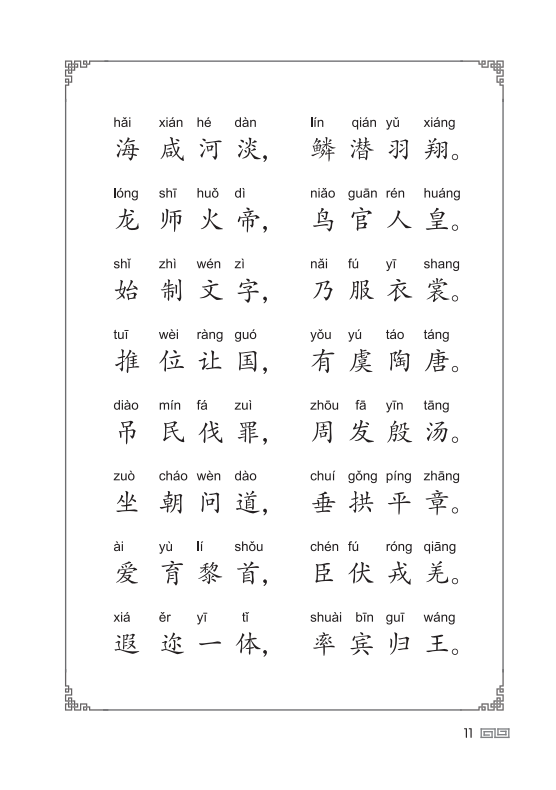 hǎi xián hé dàn lín qián yǔ xiáng
海咸河淡，鳞潜羽翔。
lóng shī huǒ dì niǎo guān rén huáng
龙师火帝，鸟官人皇。
shǐ zhì wén zì nǎi fú yī shang
始制文字，乃服衣裳。
tuī wèi ràng guó yǒu yú táo táng
推位让国，有虞陶唐。
diào mín fá zuì zhōu fā yīn tāng
吊民伐罪，周发殷汤。
zuò cháo wèn dào chuí gǒng píng zhāng
坐朝问道，垂拱平章。
ài yù lí shǒu chén fú róng qiāng
爱育黎首，臣伏戎羌。
xiá ěr yī tǐ shuài bīn guī wáng
遐迩一体，率宾归王。
11